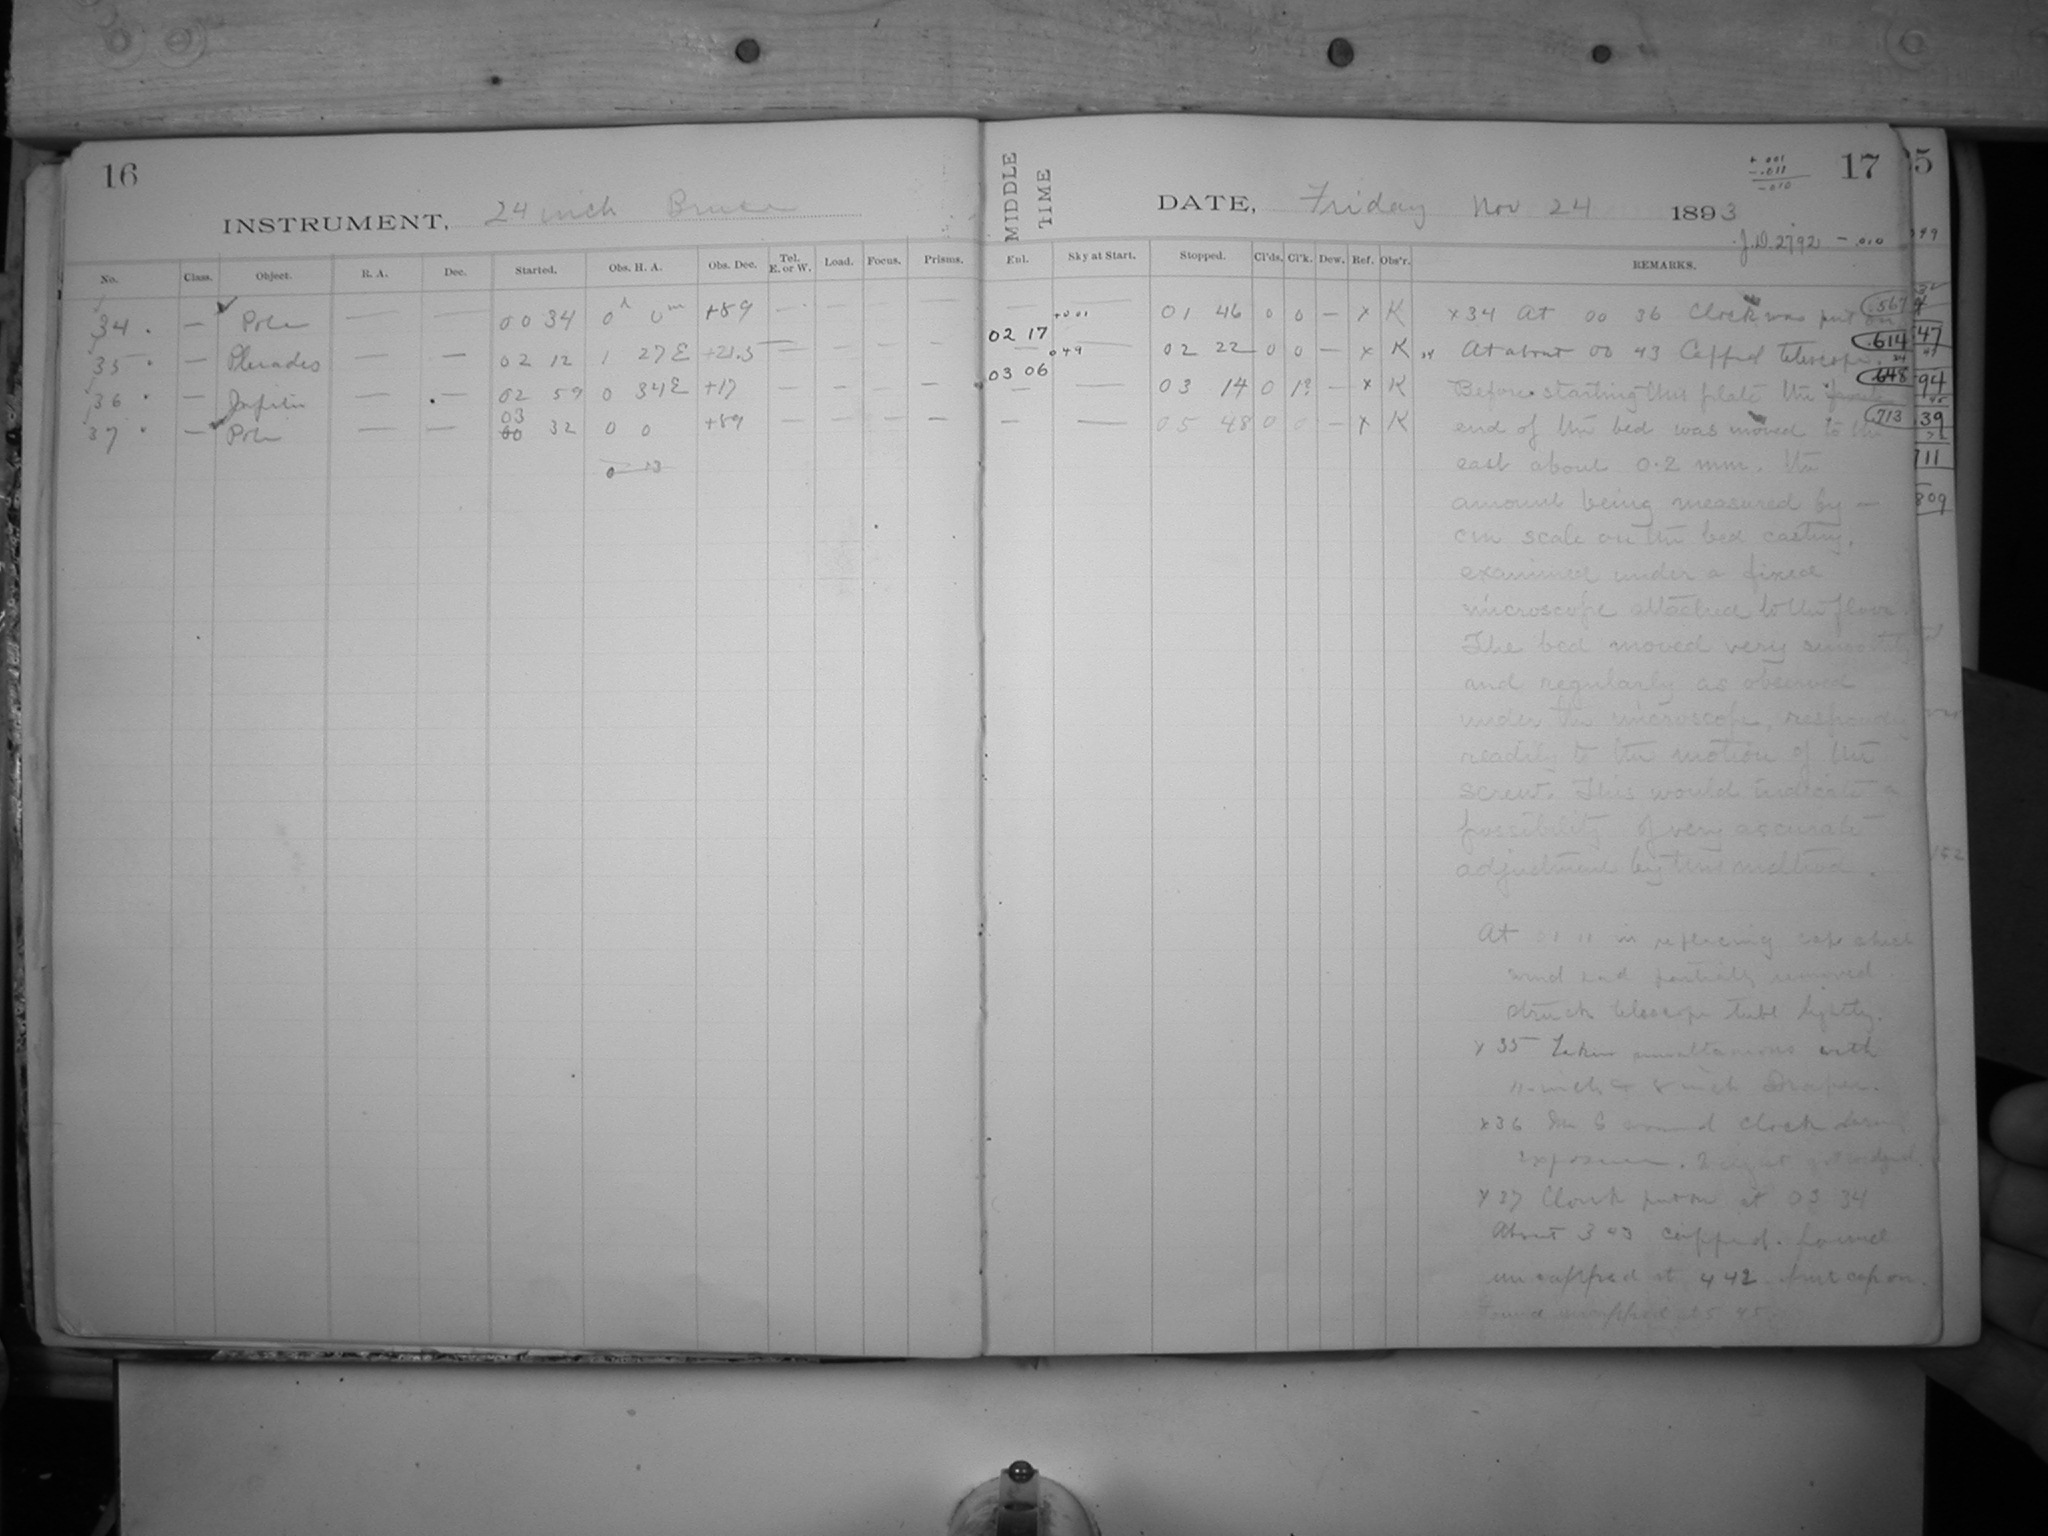 16
INSTRUMENT, 24 inch Bruce
No. Class. Object. R. A. Dec. Started. Obs. H. A. Obs. Dec. Tel. E. or W. Load. Focus. Prisms.
34. — Pole — — 00 34 0h 0m +89 — — — —
35 . — Pleiades — — 02 12 1 27E +21.3 — — — —
36 . — Jupiter — — 02 59 0 34E +17 — — — —
37 . — Pole — — 03 32 0 0 +89 — — — —
00
0 13
MIDDLE TIME
DATE, Friday Nov 24 1893
+ .001
- .011
- .010
17
J.D. 2792 - .010
Eul. Sky at Start. Stopped. Cl'ds. Cl'k. Dew. Ref. Obs'r. REMARKS.
— — 01 46 0 0 — x K
02 17 +001 — 02 22 0 0 — x K
03 06 049 — 03 14 0 1? — x K
— — 05 48 0 0 — x K
x34 At 00 36 Clock was put on .567
At about 00 43 Capped telescope. .614
Before starting this plate the .648
end of the bed was moved to the .713
east about 0.2 mm. the
amount being measured by —
cm scale on the bed casting,
examined under a fixed
microscope attached to the floor.
The bed moved very smoothly
and regularly as observed
under the microscope, responding
readily to the motion of the
screw. This would indicate a
possibility of very accurate
adjustment by this method.
At 01 11 in replacing cap which
wind had partially removed
struck telescope tube lightly.
x 35 Taken simultaneous with
11-inch & 8 inch Draper.
x36 wound clock during
exposure.
x 37 Clock put on at 03 34
About 3 43 capped. found
uncapped at 4 42 put cap on.
Found uncapped at 5 45
5
47
94
39
711
809